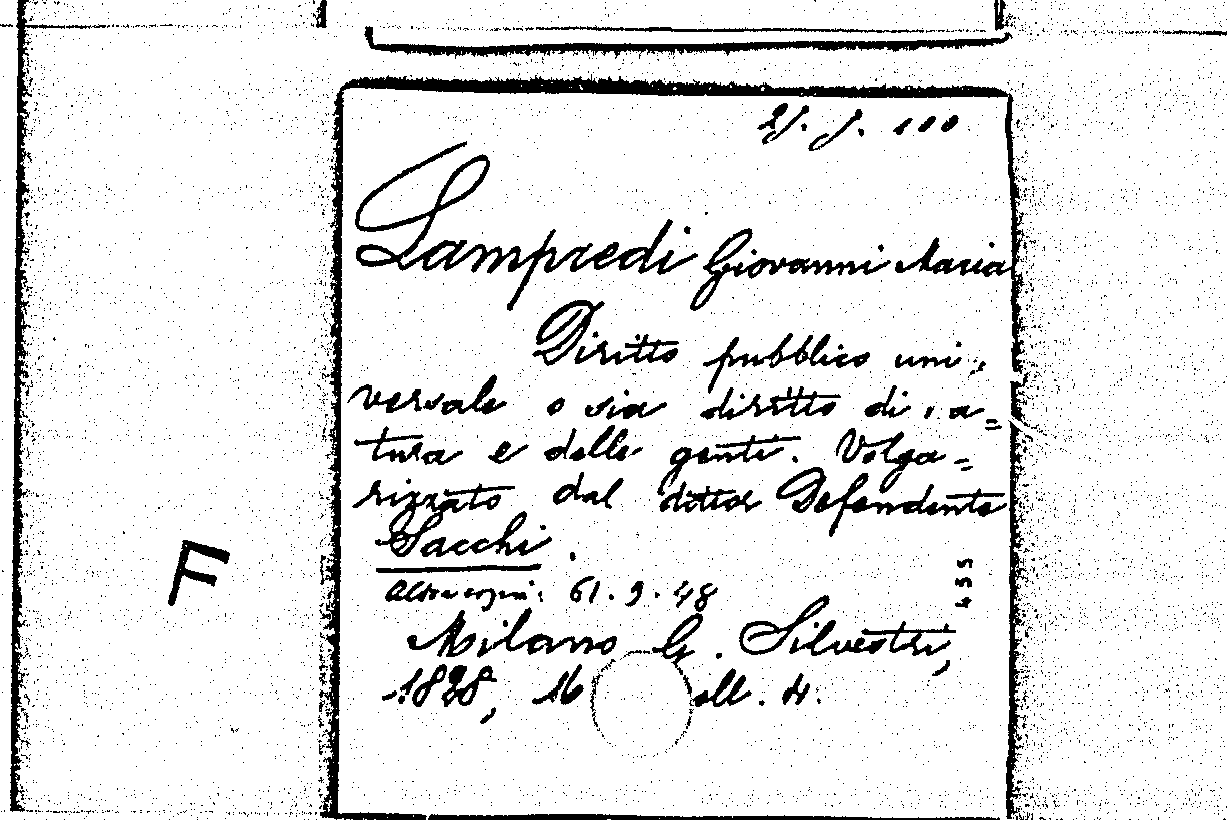 21. J. 100
Lampredi Giovanni Maria
Diritto pubblico uni,
versale o sia diritto di, a=
tura e delle genti. Volga=
rizzato dal dottor Defendente
Sacchi.
61.9.48
455
Milano G. Silvestri,
1828, 16 all. 4.
F